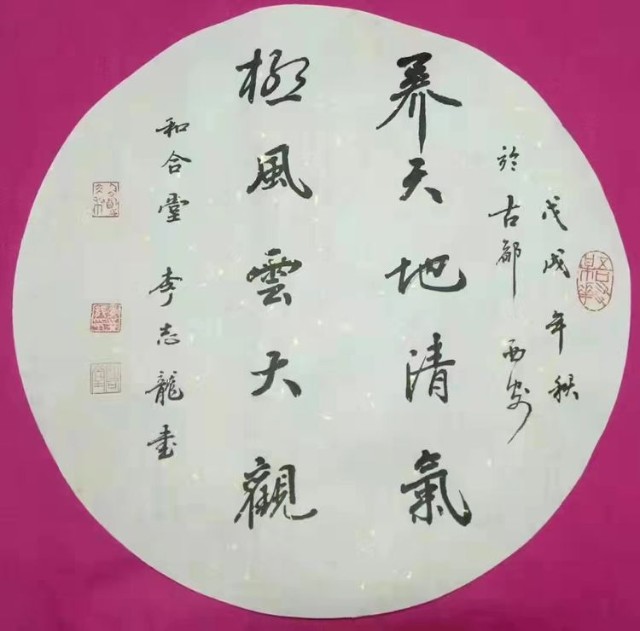 戊戌年秋
於古都西安
养天地清氣
極風雲大觀
和合堂 李志龍書